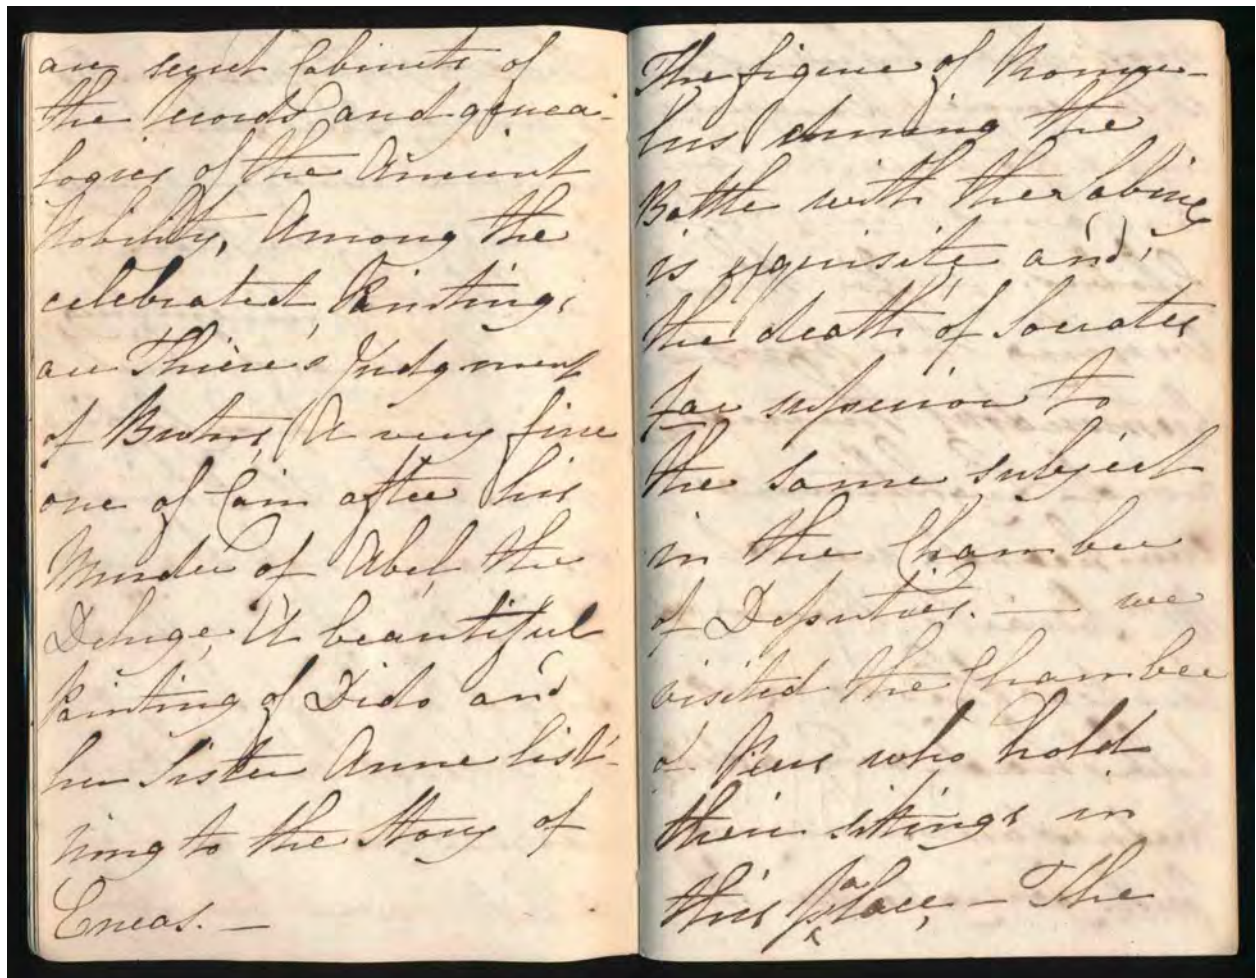 are secret Cabinets of
the records and genea-
logies of the Ancient
Nobility, Among the
celebrated Paintings
are Thiere's Judgment
of Brutus, A very fine
one of Cain after his
Murder of Abel, the
Deluge, A beautiful
Painting of Dido and
her Sister Anne list-
ning to the Story of
Eneas. —
The figure of Romu-
lus during the
Battle with the Sabines
is exquisite, and
the death of Socrates
far superior to
the same subject
in the Chamber
of Deputies. — we
visited the Chamber
of Peers who hold
their sittings in
this palace, — The